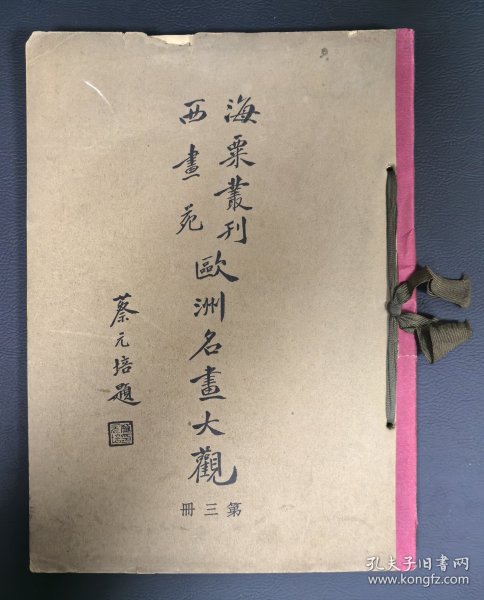 海粟叢刊
西畫苑
歐洲名畫大觀
第三冊
蔡元培題
孔夫子旧书网
www.kongfz.com